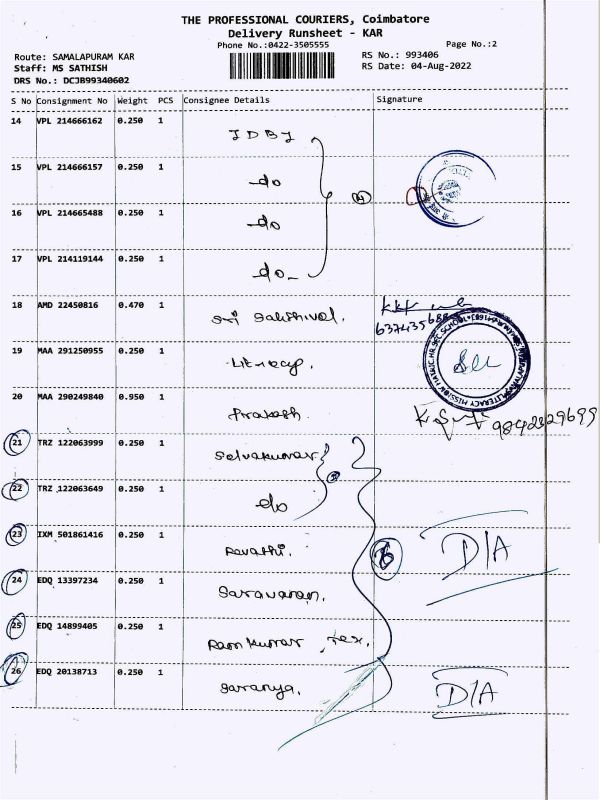 THE PROFESSIONAL COURIERS, Coimbatore
Delivery Runsheet - KAR
Phone No.:0422-3505555
Page No.:2
Route: SAMALAPURAM KAR
Staff: MS SATHISH
DRS No.: DCJB99340602
RS No.: 993406
RS Date: 04-Aug-2022
S No Consignment No Weight PCS Consignee Details Signature
14 VPL 214666162 0.250 1 IDBI
15 VPL 214666157 0.250 1 do
16 VPL 214665488 0.250 1 do
17 VPL 214119144 0.250 1 do
18 AMD 22450816 0.470 1 Sri Sakthivel.
19 MAA 291250955 0.250 1 Literacy.
20 MAA 290249840 0.950 1 Prakash. 9842329699
21 TRZ 122063999 0.250 1 Selvakumar
22 TRZ 122063649 0.250 1 do
23 IXM 501861416 0.250 1 Revathi. D/A
24 EDQ 13397234 0.250 1 Saravanan.
25 EDQ 14899405 0.250 1 Ram Kumar Tex.
26 EDQ 20138713 0.250 1 Saranya. D/A